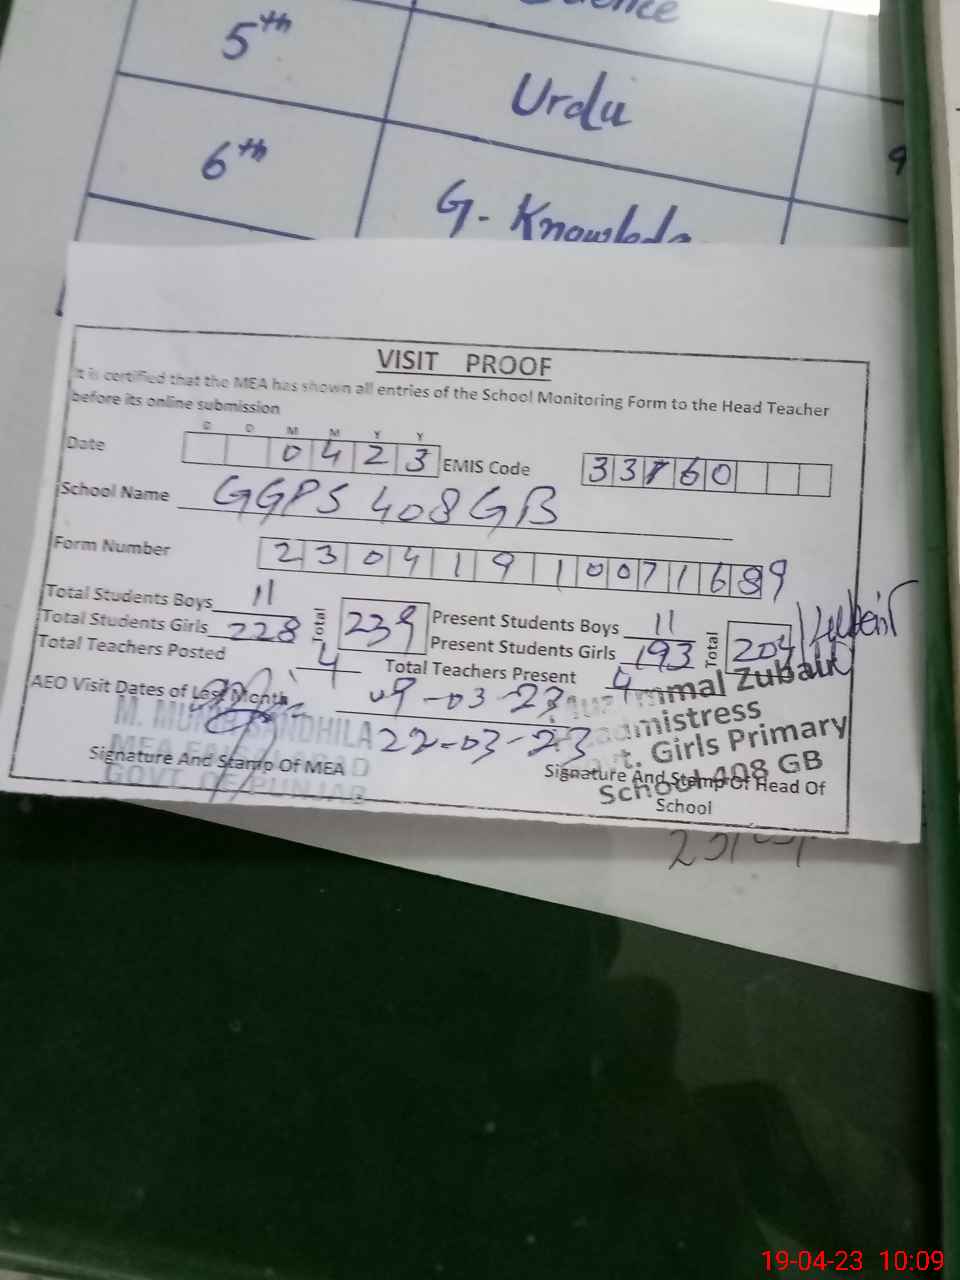 5th
Urdu
6th
9
G-
VISIT PROOF
It is certified that the MEA has shown all entries of the School Monitoring Form to the Head Teacher
before its online submission
D D M M Y Y
Date 0 4 2 3 EMIS Code 3 3 7 6 0
School Name GGPS 408 GB
Form Number 2 3 0 4 1 9 1 0 0 7 1 6 8 9
Total Students Boys 11 Total 239 Present Students Boys 11 Total 204
Total Students Girls 228 Present Students Girls 193
Total Teachers Posted 4 Total Teachers Present 4
AEO Visit Dates of Last Month 09-03-23
22-03-23
M.
MEA FAISALABAD
GOVT. OF PUNJAB
Signature And Stamp Of MEA
Zubair
Headmistress
Govt. Girls Primary
School 408 GB
Signature And Stamp Of Head Of
School
19-04-23 10:09